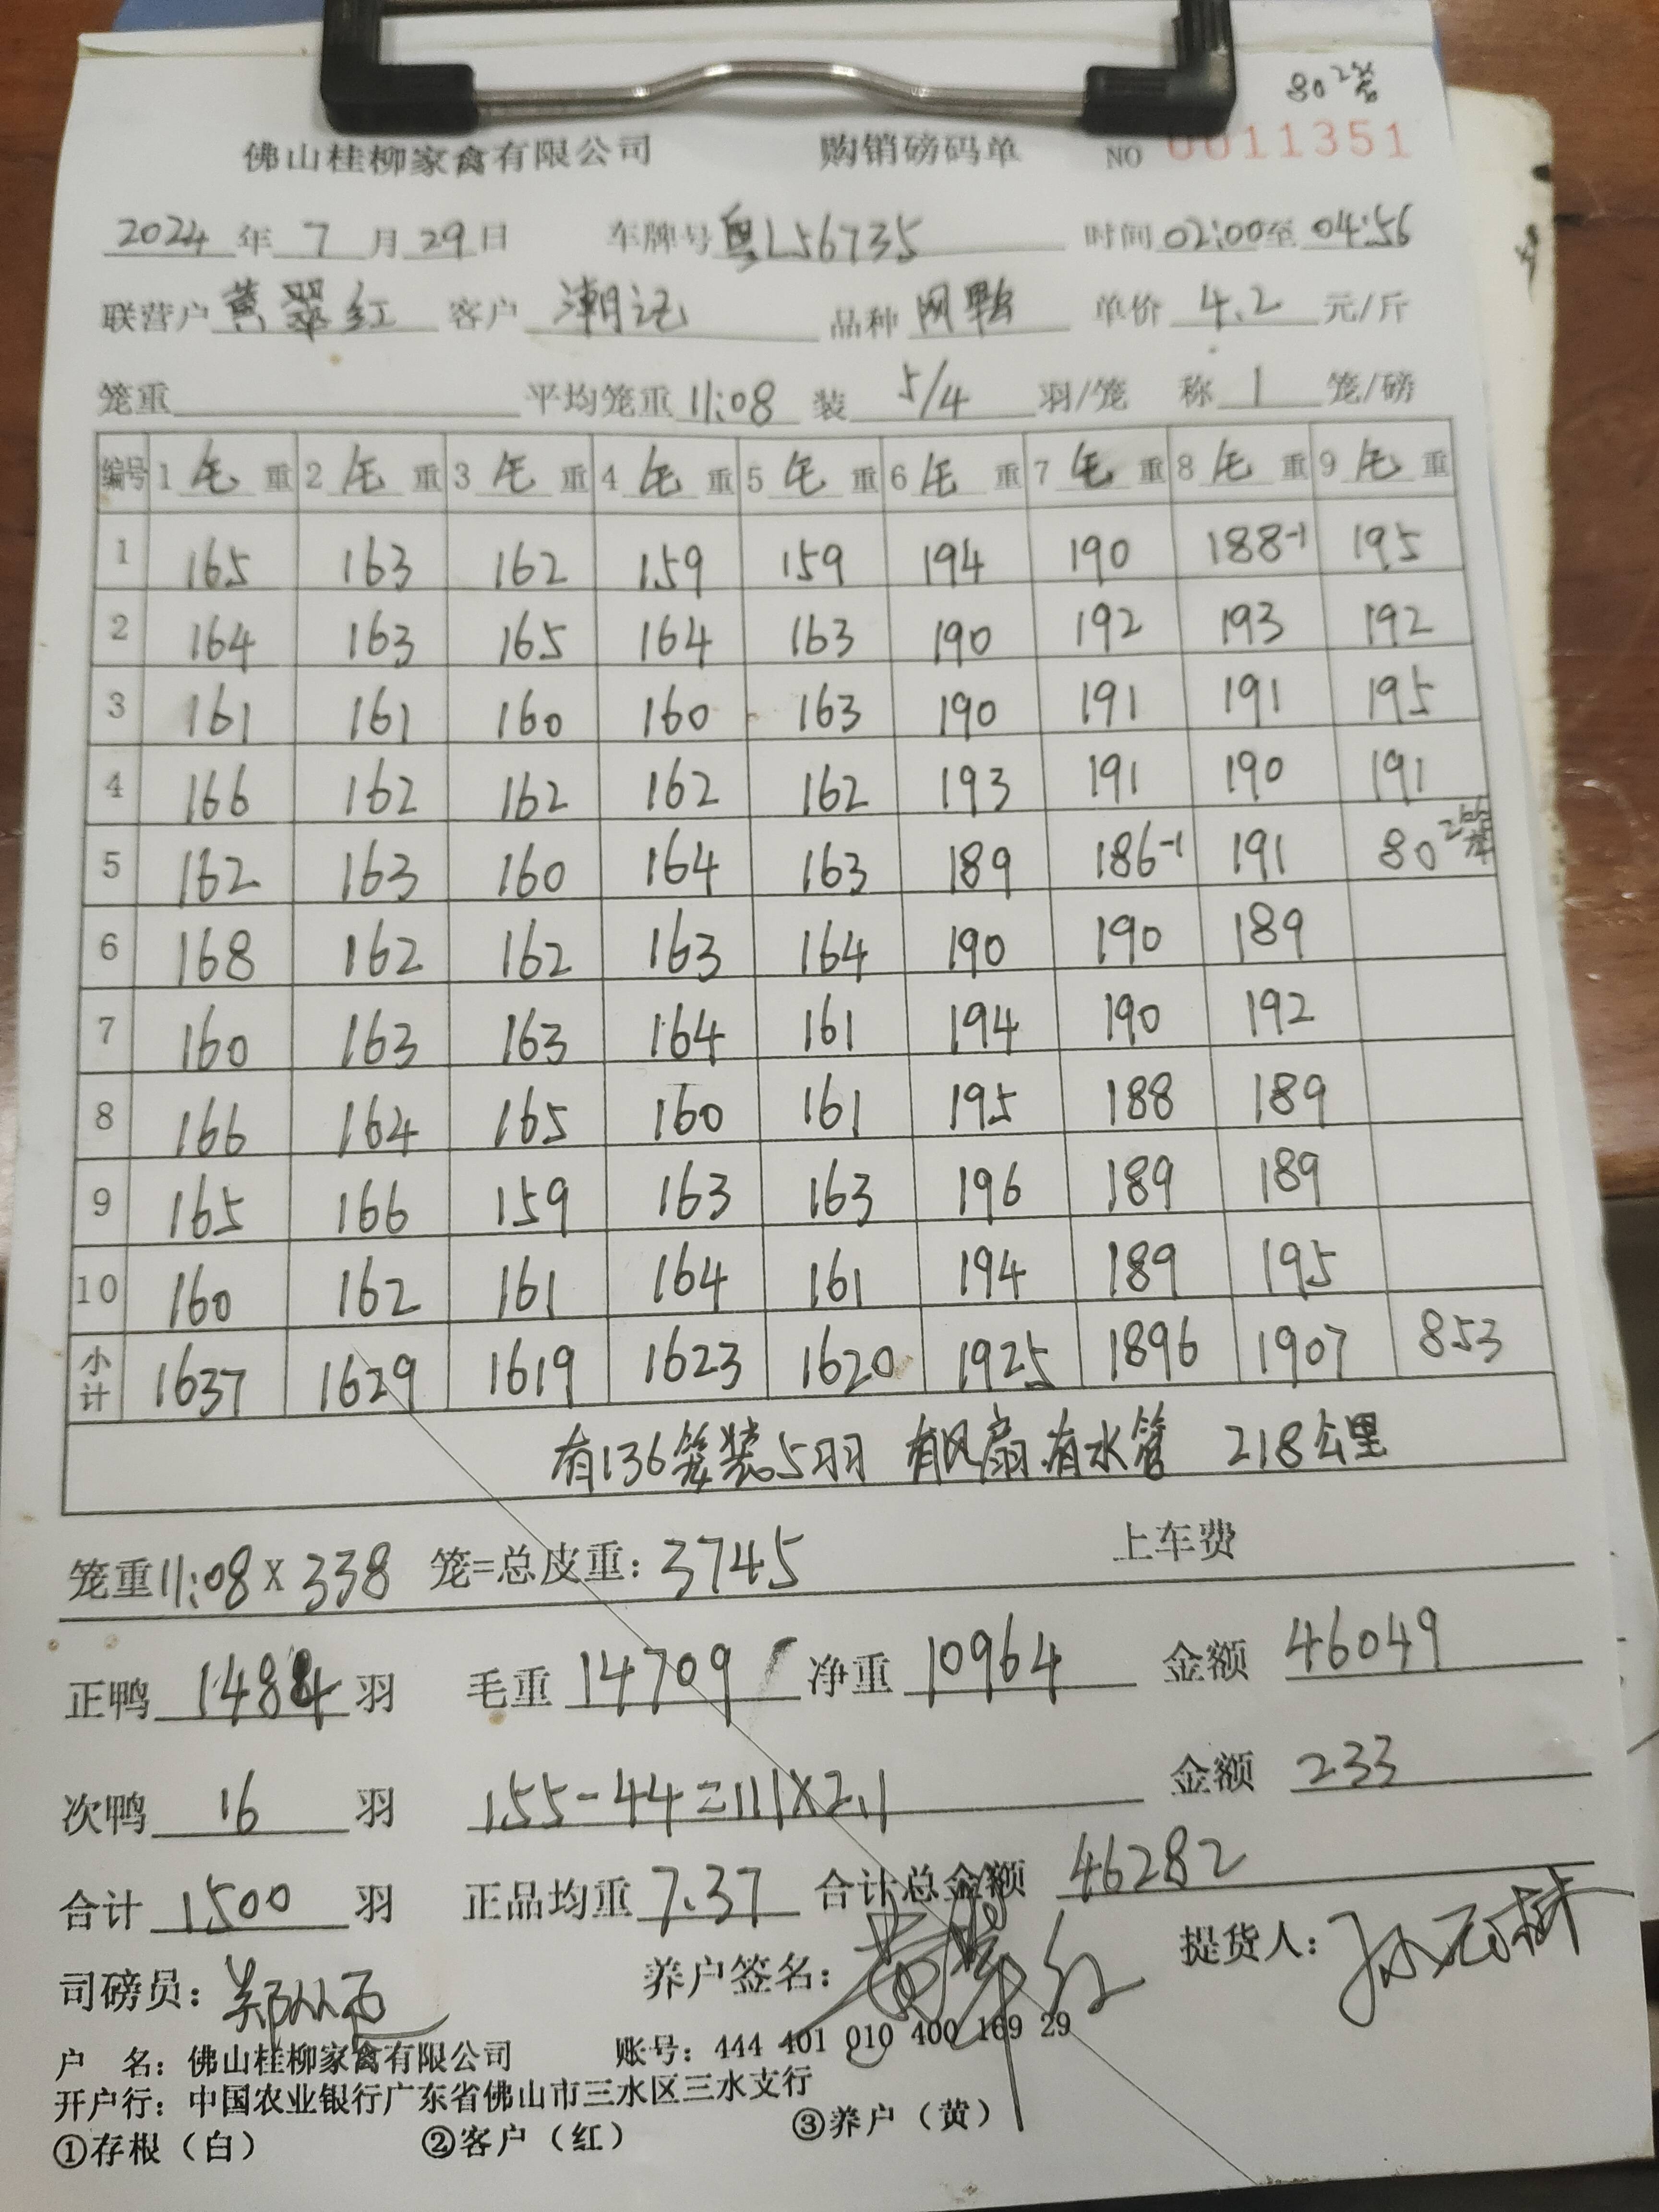 80 2笼
佛山桂柳家禽有限公司 购销磅码单 NO 0011351
2024年7月29日 车牌号粤L56735 时间02:00至04:56
联营户黄翠红 客户潮记 品种网鸭 单价4.2元/斤
笼重 平均笼重11:08 装5/4羽/笼 称1笼/磅
编号 1毛重 2毛重 3毛重 4毛重 5毛重 6毛重 7毛重 8毛重 9毛重
1 165 163 162 159 159 194 190 188-1 195
2 164 163 165 164 163 190 192 193 192
3 161 161 160 160 163 190 191 191 195
4 166 162 162 162 162 193 191 190 191
5 162 163 160 164 163 189 186-1 191 80 2笼
6 168 162 162 163 164 190 190 189
7 160 163 163 164 161 194 190 192
8 166 164 165 160 161 195 188 189
9 165 166 159 163 163 196 189 189
10 160 162 161 164 161 194 189 195
小计 1637 1629 1619 1623 1620 1925 1896 1907 853
有136笼装5羽 有风扇.有水管 218公里
笼重11:08X338 笼=总皮重:3745 上车费
正鸭1484羽 毛重14709 净重10964 金额46049
次鸭16羽 155-44=111X2.1 金额233
合计1500羽 正品均重7.37 合计总金额46282
司磅员: 养户签名:黄翠红 提货人:
户 名:佛山桂柳家禽有限公司 账号:444 401 010 400 169 29
开户行:中国农业银行广东省佛山市三水区三水支行
①存根(白) ②客户(红) ③养户(黄)